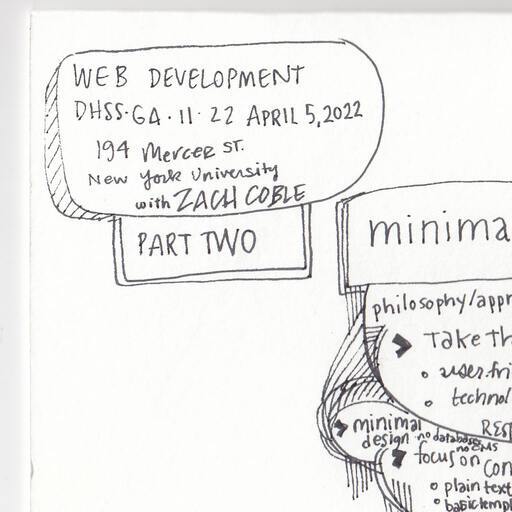 WEB DEVELOPMENT
DHSS-GA·11·22 APRIL 5, 2022
194 Mercer ST.
New York University
with ZACH COBLE
PART TWO
minima
philosophy/appr
Take th
user-fri
technol
RESP
minimal
design no databases
no CMS
focus on con
plain text
basic templ